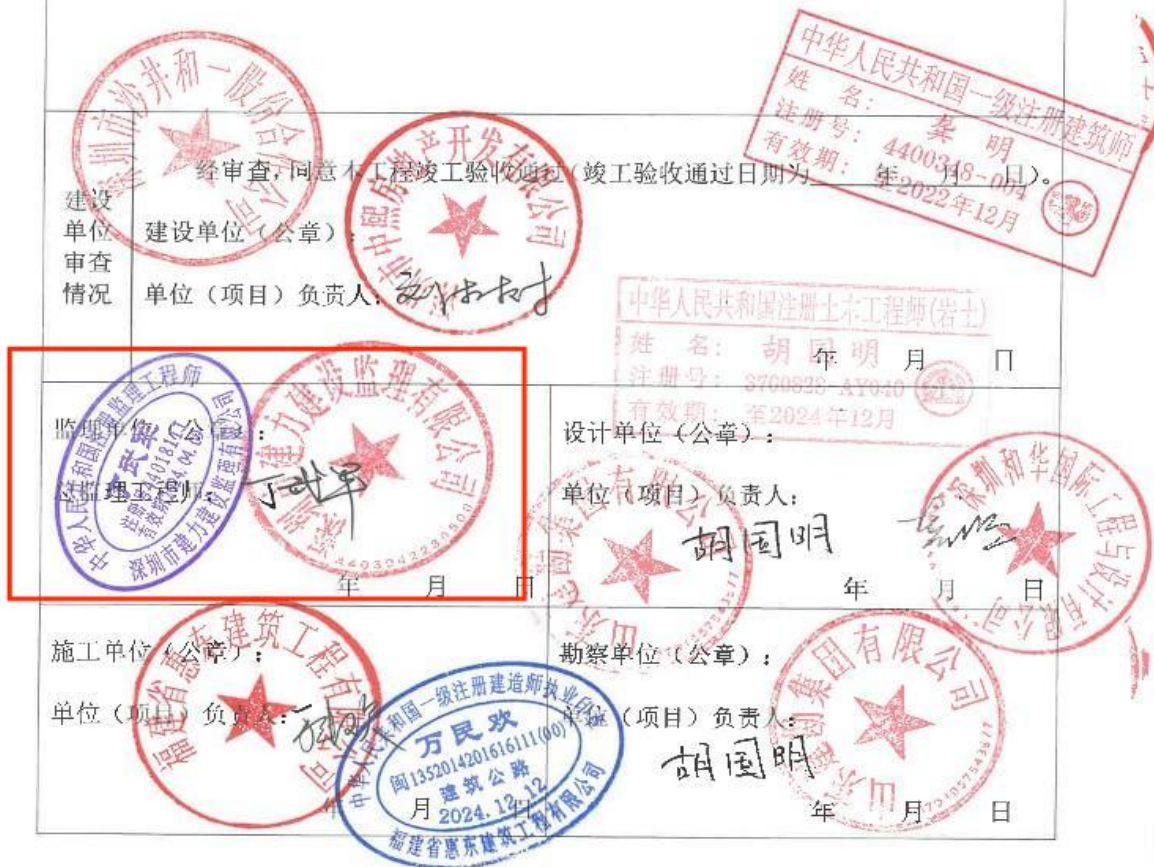 中华人民共和国一级注册建筑师
姓 名: 龚 明
注册号: 4400348-004
有效期: 至2022年12月
市沙井和一股份合作公司
市中熙房地产开发有限公司
建设单位审查情况
经审查,同意本工程竣工验收通过(竣工验收通过日期为 年 月 日)。
建设单位(公章):
单位(项目)负责人:
年 月 日
中华人民共和国注册土木工程师(岩土)
姓 名: 胡国明
注册号: 3700828-AY040
有效期: 至2024年12月
监理单位(公章):
总监理工程师:
年 月 日
中华人民共和国注册监理工程师
深圳市建力建设监理有限公司
深圳市建力建设监理有限公司
4403042230500
设计单位(公章):
单位(项目)负责人:
胡国明
年 月 日
集团有限公司
深圳和华国际工程与设计有限公司
施工单位(公章):
单位(项目)负责人:
年 月 日
福建省惠东建筑工程有限公司
中华人民共和国一级注册建造师执业印章
万民欢
闽1352014201616111(00)
建筑公路
2024.12.12
福建省惠东建筑工程有限公司
勘察单位(公章):
单位(项目)负责人:
胡国明
年 月 日
集团有限公司